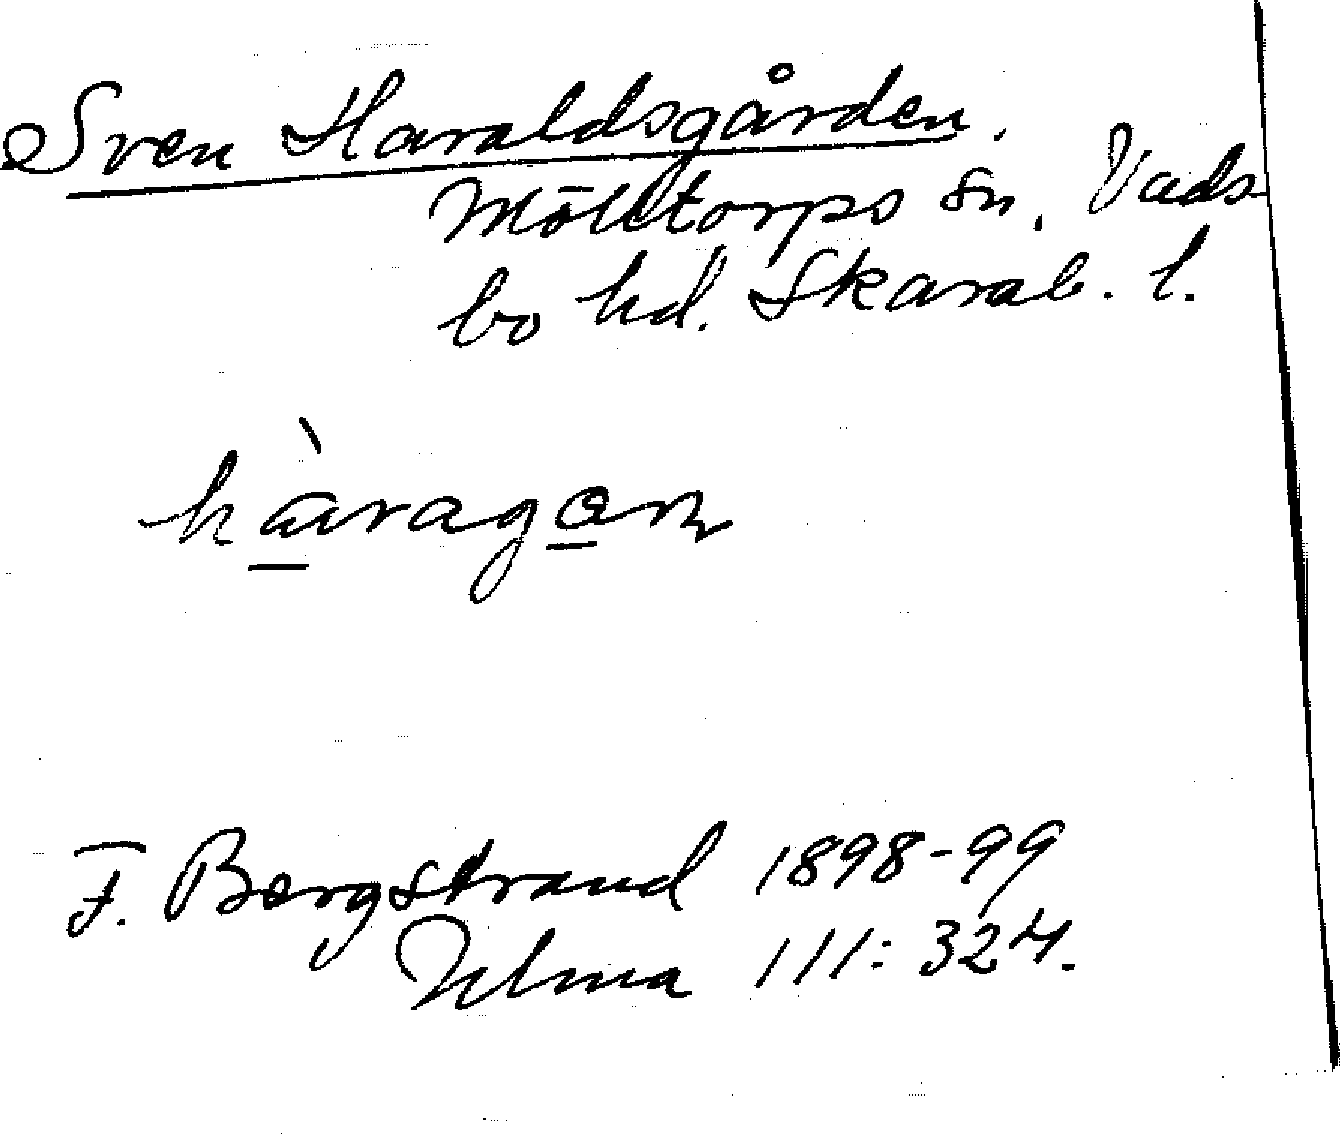 Sven Haraldsgården.
Mölltorps sn. Vads-
bo hd. Skarab. l.
hàragan
F. Bergstrand 1898-99
Ulma 111:324.